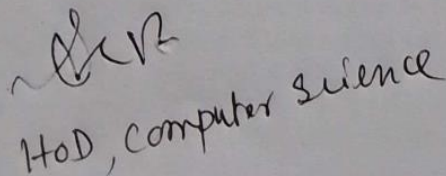 HoD, Computer Science